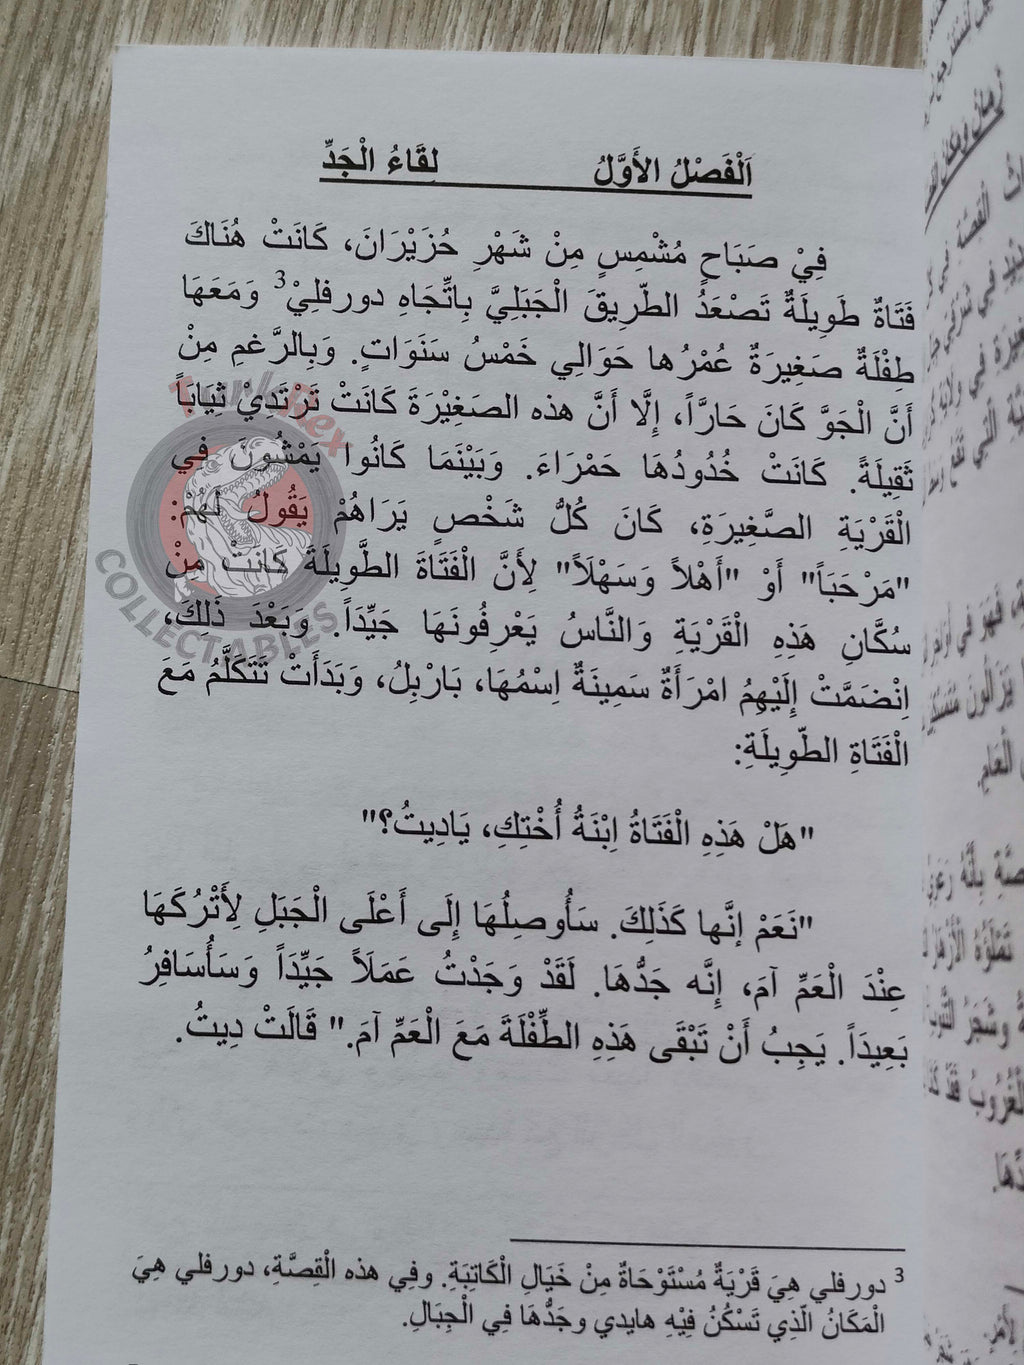 اَلْفَصْلُ الأَوَّلُ لِقَاءُ الْجَدِّ
فِيْ صَبَاحٍ مُشْمِسٍ مِنْ شَهْرِ حُزَيْرَانَ، كَانَتْ هُنَاكَ
فَتَاةٌ طَوِيلَةٌ تَصْعَدُ الطّرِيقَ الْجَبَلِيَّ بِاتِّجَاهِ دورفلِيْ3 وَمَعَهَا
طِفْلَةٌ صَغِيرَةٌ عُمْرُها حَوَالِي خَمْسُ سَنَوَاتٍ. وَبِالرَّغمِ مِنْ
أَنَّ الْجَوَّ كَانَ حَارَّاً، إِلَّا أَنَّ هذه الصَغِيْرَةَ كَانَتْ تَرْتَدِيْ ثِيَابَاً
ثَقِيلَةً. كَانَتْ خُدُودُهَا حَمْرَاءَ. وَبَيْنَمَا كَانُوا يَمْشُونَ فِي
الْقَرْيَةِ الصَّغِيرَةِ، كَانَ كُلُّ شَخْصٍ يَرَاهُمْ يَقُولُ لَهُمْ:
"مَرْحَبَاً" أَوْ "أَهْلاً وَسَهْلَاً" لِأَنَّ الْفَتَاةَ الطَّوِيلَةَ كَانَتْ مِنْ
سُكَّانِ هَذِهِ الْقَرْيَةِ وَالنَّاسُ يَعْرِفُونَهَا جَيِّدَاً. وَبَعْدَ ذَلِكَ،
اِنْضَمَّتْ إِلَيْهِمُ امْرَأَةٌ سَمِينَةٌ اِسْمُهَا، بَارْبِلُ، وَبَدَأَتْ تَتَكَلَّمُ مَعَ
الْفَتَاةِ الطّوِيلَةِ:
"هَلْ هَذِهِ الْفَتَاةُ اِبْنَةُ أُخْتِكِ، يَادِيتُ؟"
"نَعَمْ إنَّها كَذَلِكَ. سَأُوصِلُهَا إِلَى أَعْلَى الْجَبَلِ لِأَتْرُكَهَا
عِنْدَ الْعَمِّ آمَ، إِنَّه جَدُّهَا. لَقَدْ وَجَدْتُ عَمَلَاً جَيِّدَاً وَسَأُسَافِرُ
بَعِيدَاً. يَجِبُ أَنْ تَبْقَى هَذِهِ الطِّفْلَةَ مَعَ الْعَمِّ آمَ." قَالَتْ دِيتُ.
3 دورفلي هِيَ قَرْيَةٌ مُسْتَوْحَاةٌ مِنْ خَيَالِ الْكَاتِبَةِ. وفِي هذه الْقِصَّةِ، دورفلي هِيَ
الْمَكَانُ الّذِي تَسْكُنُ فِيْهِ هايدي وجَدُّهَا فِي الْجِبَالِ.
TankRex
COLLECTABLES